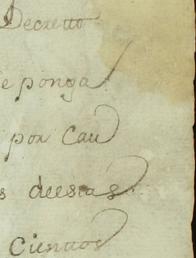 Decretto
e ponga
por cau
s deestas
cientos